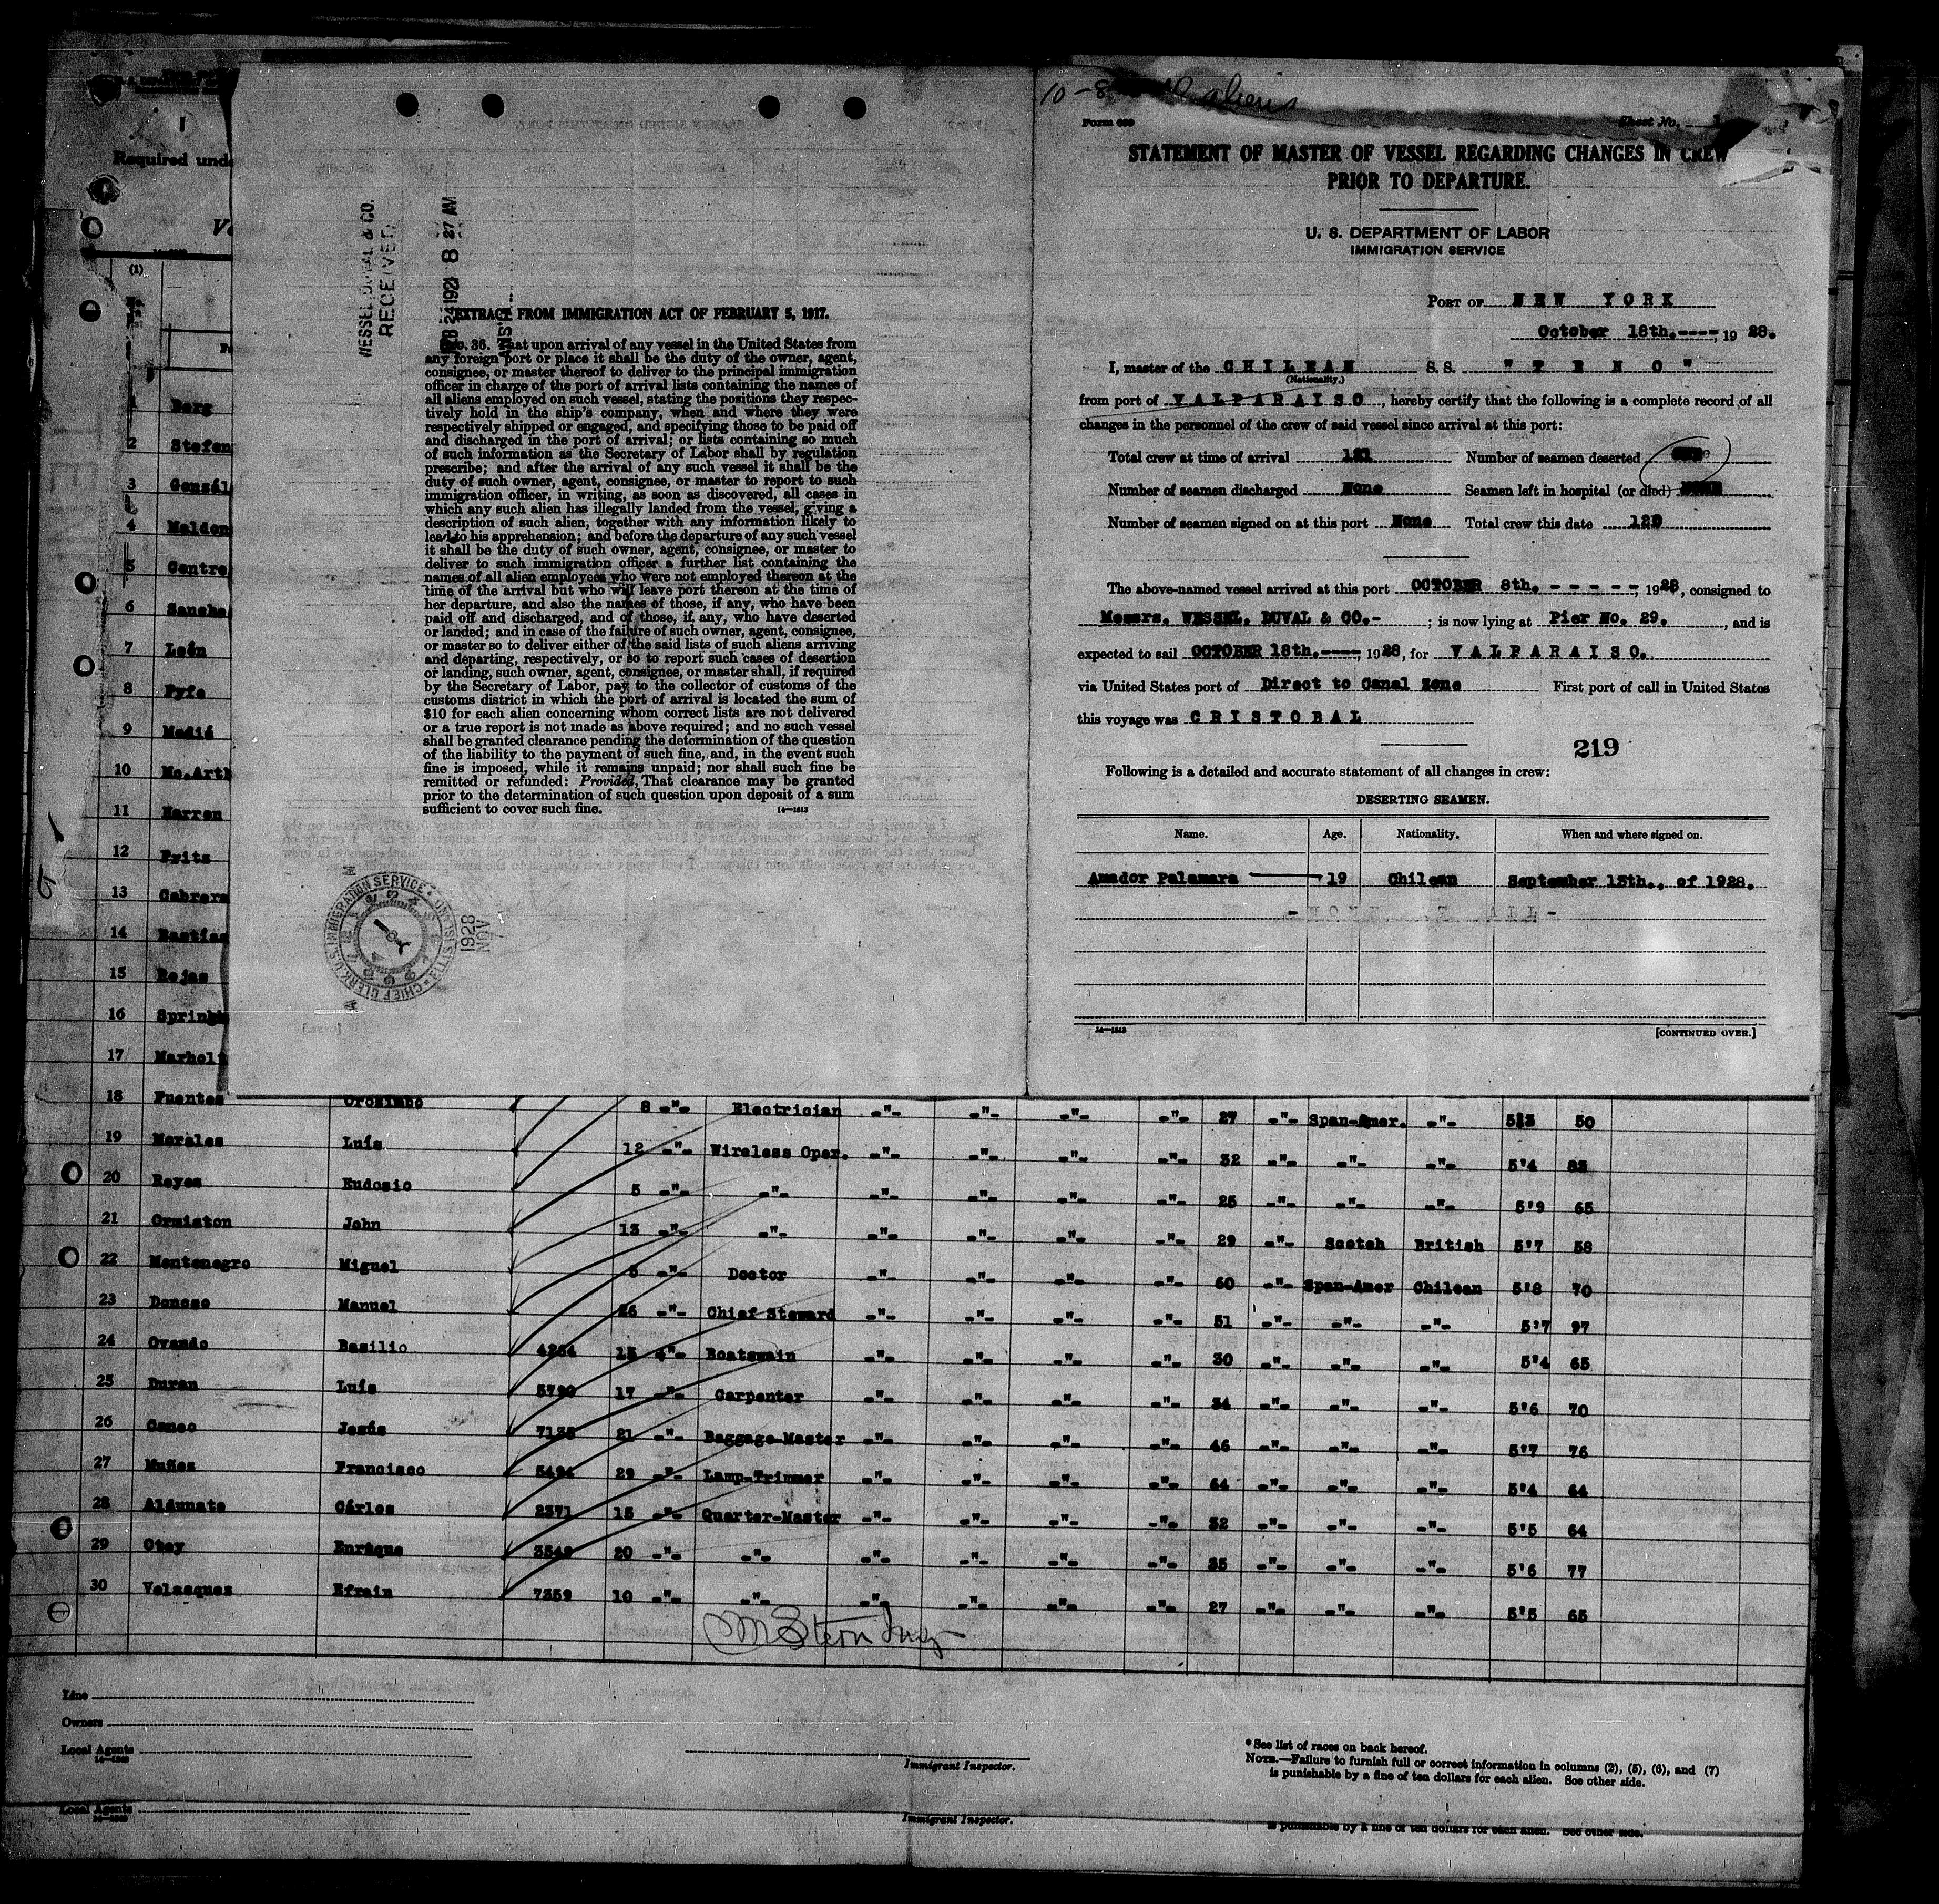 10-8
aliens
Form 689
Sheet No.
STATEMENT OF MASTER OF VESSEL REGARDING CHANGES IN CREW
PRIOR TO DEPARTURE.
U. S. DEPARTMENT OF LABOR
IMMIGRATION SERVICE
PORT OF NEW YORK
October 18th.----, 1928.
I, master of the CHILEAN S. S. "TENO"
(Nationality.)
from port of VALPARAISO, hereby certify that the following is a complete record of all
changes in the personnel of the crew of said vessel since arrival at this port:
Total crew at time of arrival 121 Number of seamen deserted
Number of seamen discharged None Seamen left in hospital (or died)
Number of seamen signed on at this port None Total crew this date 120
The above-named vessel arrived at this port OCTOBER 8th. - - - - -, 1928, consigned to
Messrs. WESSEL, DUVAL & CO.- ; is now lying at Pier No. 29. , and is
expected to sail OCTOBER 18th.----, 1928, for VALPARAISO.
via United States port of Direct to Canal Zone First port of call in United States
this voyage was CRISTOBAL
219
Following is a detailed and accurate statement of all changes in crew:
DESERTING SEAMEN.
Name. Age. Nationality. When and where signed on.
Amador Palamara 19 Chilean September 13th., of 1928.
14-1613
[CONTINUED OVER.]
WESSEL, DUVAL & CO.
RECEIVED
1928 8 27 AM
EXTRACT FROM IMMIGRATION ACT OF FEBRUARY 5, 1917.
Sec. 36. That upon arrival of any vessel in the United States from
any foreign port or place it shall be the duty of the owner, agent,
consignee, or master thereof to deliver to the principal immigration
officer in charge of the port of arrival lists containing the names of
all aliens employed on such vessel, stating the positions they respec-
tively hold in the ship's company, when and where they were
respectively shipped or engaged, and specifying those to be paid off
and discharged in the port of arrival; or lists containing so much
of such information as the Secretary of Labor shall by regulation
prescribe; and after the arrival of any such vessel it shall be the
duty of such owner, agent, consignee, or master to report to such
immigration officer, in writing, as soon as discovered, all cases in
which any such alien has illegally landed from the vessel, giving a
description of such alien, together with any information likely to
lead to his apprehension; and before the departure of any such vessel
it shall be the duty of such owner, agent, consignee, or master to
deliver to such immigration officer a further list containing the
names of all alien employees who were not employed thereon at the
time of the arrival but who will leave port thereon at the time of
her departure, and also the names of those, if any, who have been
paid off and discharged, and of those, if any, who have deserted
or landed; and in case of the failure of such owner, agent, consignee,
or master so to deliver either of the said lists of such aliens arriving
and departing, respectively, or so to report such cases of desertion
or landing, such owner, agent, consignee, or master shall, if required
by the Secretary of Labor, pay to the collector of customs of the
customs district in which the port of arrival is located the sum of
$10 for each alien concerning whom correct lists are not delivered
or a true report is not made as above required; and no such vessel
shall be granted clearance pending the determination of the question
of the liability to the payment of such fine, and, in the event such
fine is imposed, while it remains unpaid; nor shall such fine be
remitted or refunded: Provided, That clearance may be granted
prior to the determination of such question upon deposit of a sum
sufficient to cover such fine. 14-1613
CHIEF CLERK U.S. IMMIGRATION SERVICE ELLIS ISLAND
1928 NOV
Required unde
(1)
1 Berg
2 Stefen
3 Gonzál
4 Maldon
5 Contre
6 Sanche
7 León
8 Fyfe
9 Madié
10 Mc.Arth
11 Herren
12 Frits
13 Cabrera
14 Bastias
15 Rojas
16 Spring
17 Marhol
18 Fuentes Orozimbo 8 -"- Electrician -"- -"- -"- -"- 27 -"- Span-Amer. -"- 5'5 50
19 Morales Luis 12 -"- Wireless Oper. -"- -"- -"- -"- 32 -"- -"- -"- 5'4 83
20 Reyes Eudosio 5 -"- -"- -"- -"- -"- -"- 25 -"- -"- -"- 5'9 65
21 Ormiston John 13 -"- -"- -"- -"- -"- -"- 29 -"- Scotch British 5'7 58
22 Montenegro Miguel 5 -"- Doctor -"- -"- -"- -"- 60 -"- Span-Amer Chilean 5'8 70
23 Donoso Manuel 26 -"- Chief Steward -"- -"- -"- -"- 51 -"- -"- -"- 5'7 97
24 Ovando Basilio 4264 13 -"- Boatswain -"- -"- -"- -"- 30 -"- -"- -"- 5'4 65
25 Duran Luis 5790 17 -"- Carpenter -"- -"- -"- -"- 34 -"- -"- -"- 5'6 70
26 Caneo Jesús 7135 21 -"- Baggage-Master -"- -"- -"- -"- 46 -"- -"- -"- 5'7 76
27 Muñoz Francisco 5494 29 -"- Lamp-Trimmer -"- -"- -"- -"- 64 -"- -"- -"- 5'4 64
28 Aldunate Cárlos 2371 15 -"- Quarter-Master -"- -"- -"- -"- 32 -"- -"- -"- 5'5 64
29 Otey Enrique 3549 20 -"- -"- -"- -"- -"- -"- 35 -"- -"- -"- 5'6 77
30 Velasquez Efrain 7359 10 -"- -"- -"- -"- -"- -"- 27 -"- -"- -"- 5'5 65
Line
Owners
Local Agents
14-1240
Immigrant Inspector.
*See list of races on back hereof.
NOTE.—Failure to furnish full or correct information in columns (2), (5), (6), and (7)
is punishable by a fine of ten dollars for each alien. See other side.
Local Agents
Immigrant Inspector.
is punishable by a fine of ten dollars for each alien. See other side.